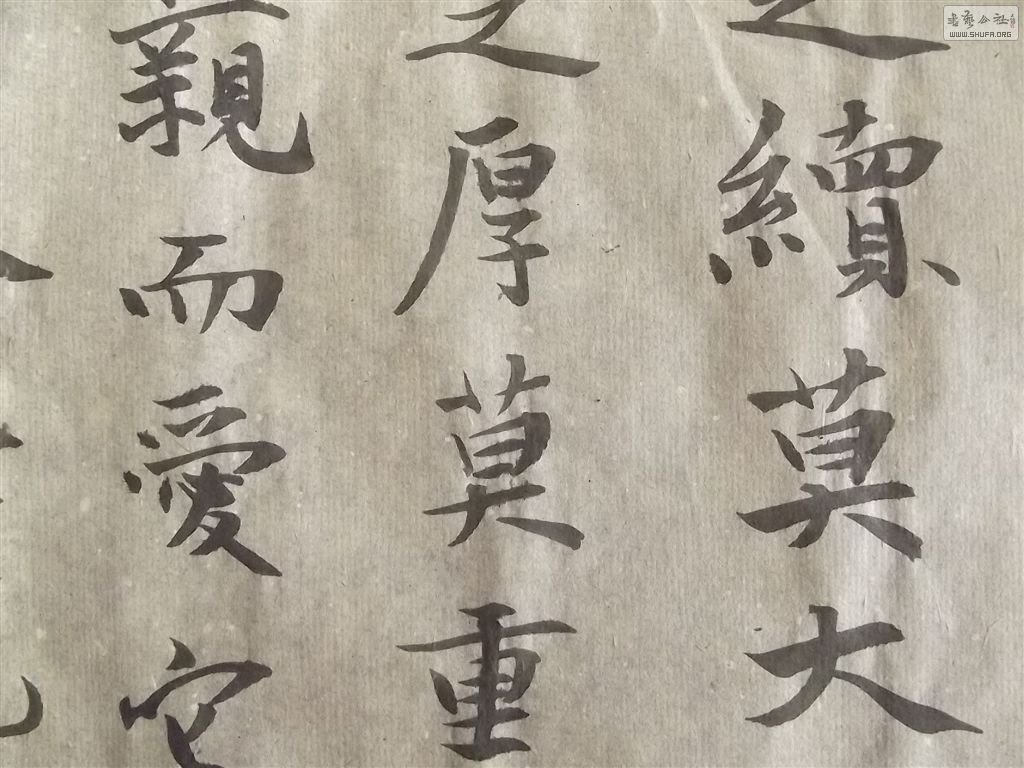 之續莫大
之厚莫重
親而愛它
書藝公社
WWW.SHUFA.ORG